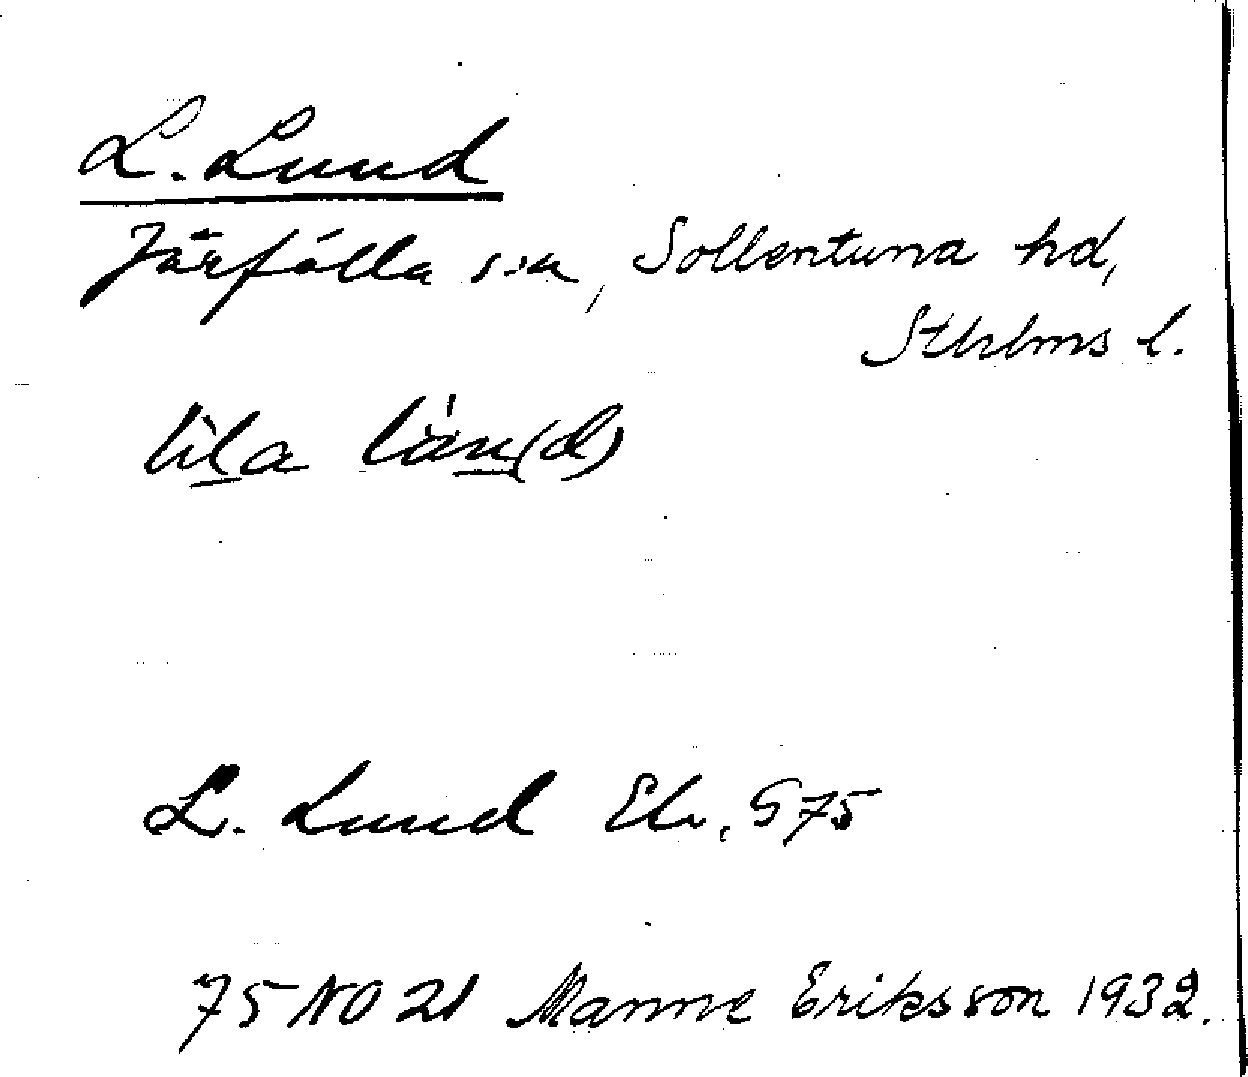 L. Lund
Järfälla sn, Sollentuna hd,
Sthlms l.
lila län(d)
L. Lund Ek. S 75
75 NO 21 Manne Eriksson 1932.